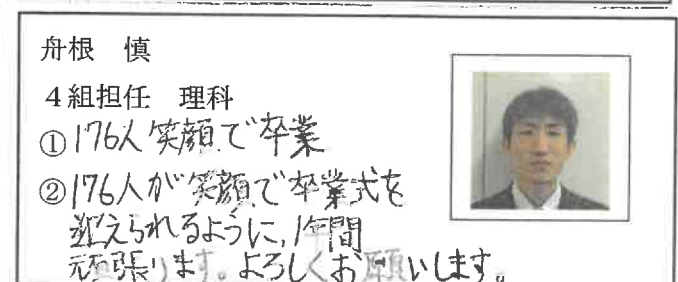 舟根　慎
４組担任　理科
①176人笑顔で卒業
②176人が笑顔で卒業式を
迎えられるように、1年間
頑張ります。よろしくお願いします。